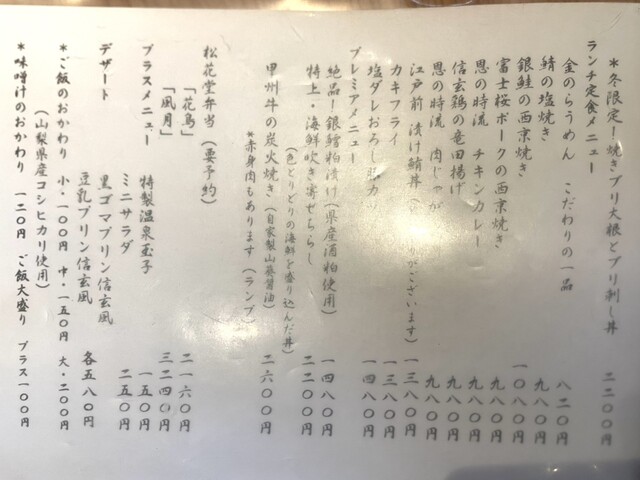 *冬限定！焼きブリ大根とブリ刺し丼 二二〇〇円
ランチ定食メニュー
金のらうめん こだわりの一品 八二〇円
鯖の塩焼き 九八〇円
銀鮭の西京焼き 一〇八〇円
富士桜ポークの西京焼き 九八〇円
恩の時流 チキンカレー 九八〇円
信玄鶏の竜田揚げ 九八〇円
恩の時流 肉じゃが 九八〇円
江戸前 漬け鮪丼 がございます） 一三八〇円
カキフライ 一三八〇円
塩ダレおろし 一四八〇円
プレミアメニュー
絶品！銀鱈粕漬け（県産酒粕使用） 一四八〇円
特上・海鮮吹き寄せちらし 二二〇〇円
（色とりどりの海鮮を盛り込んだ丼）
甲州牛の炭火焼き（自家製山葵醤油） 二六〇〇円
*赤身肉もあります（ランプ）
松花堂弁当（要予約）
「花鳥」 二一六〇円
「風月」 三二四〇円
プラスメニュー 特製温泉玉子 一五〇円
ミニサラダ 二五〇円
デザート 黒ゴマプリン信玄風
豆乳プリン信玄風 各五八〇円
*ご飯のおかわり 小・一〇〇円 中・一五〇円 大・二〇〇円
（山梨県産コシヒカリ使用）
*味噌汁のおかわり 一二〇円 ご飯大盛り プラス一〇〇円